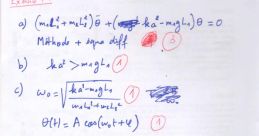 a) (m₁L₁² + m₂L₂²) θ̈ + (ka² - m₁gL₁) θ = 0
Méthode + equa diff ③
b) ka² > m₁gL₁ ①
c) ω₀ = √((ka² - m₁gL₁)/(m₁L₁² + m₂L₂²)) ①
θ(t) = A cos(ω₀t + φ) ①